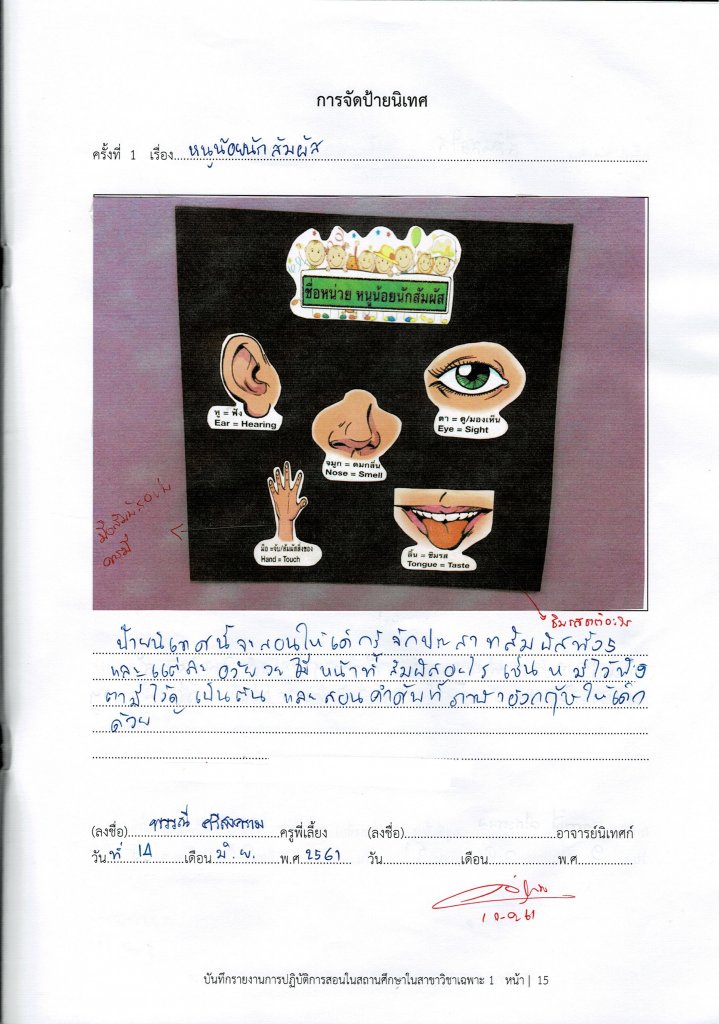 การจัดป้ายนิเทศ
ครั้งที่ 1 เรื่อง หนูน้อยนักสัมผัส
ชื่อหน่วย หนูน้อยนักสัมผัส
หู = ฟัง
Ear = Hearing
ตา = ดู/มองเห็น
Eye = Sight
จมูก = ดมกลิ่น
Nose = Smell
มือ =จับ/สัมผัสสิ่งของ
Hand = Touch
ลิ้น = ชิมรส
Tongue = Taste
ป้ายนิเทศนี้จะสอนให้เด็กรู้จักประสาทสัมผัสทั้ง 5
และแต่ละอวัยวะมีหน้าที่สัมผัสอะไร เช่น หูมีไว้ฟัง
ตามีไว้ดู เป็นต้น และสอนคำศัพท์ภาษาอังกฤษให้เด็ก
ด้วย
(ลงชื่อ) ครูพี่เลี้ยง (ลงชื่อ) อาจารย์นิเทศก์
วัน ที่ 14 เดือน มิ.ย. พ.ศ. 2561 วัน เดือน พ.ศ.
บันทึกรายงานการปฏิบัติการสอนในสถานศึกษาในสาขาวิชาเฉพาะ 1 หน้า | 15